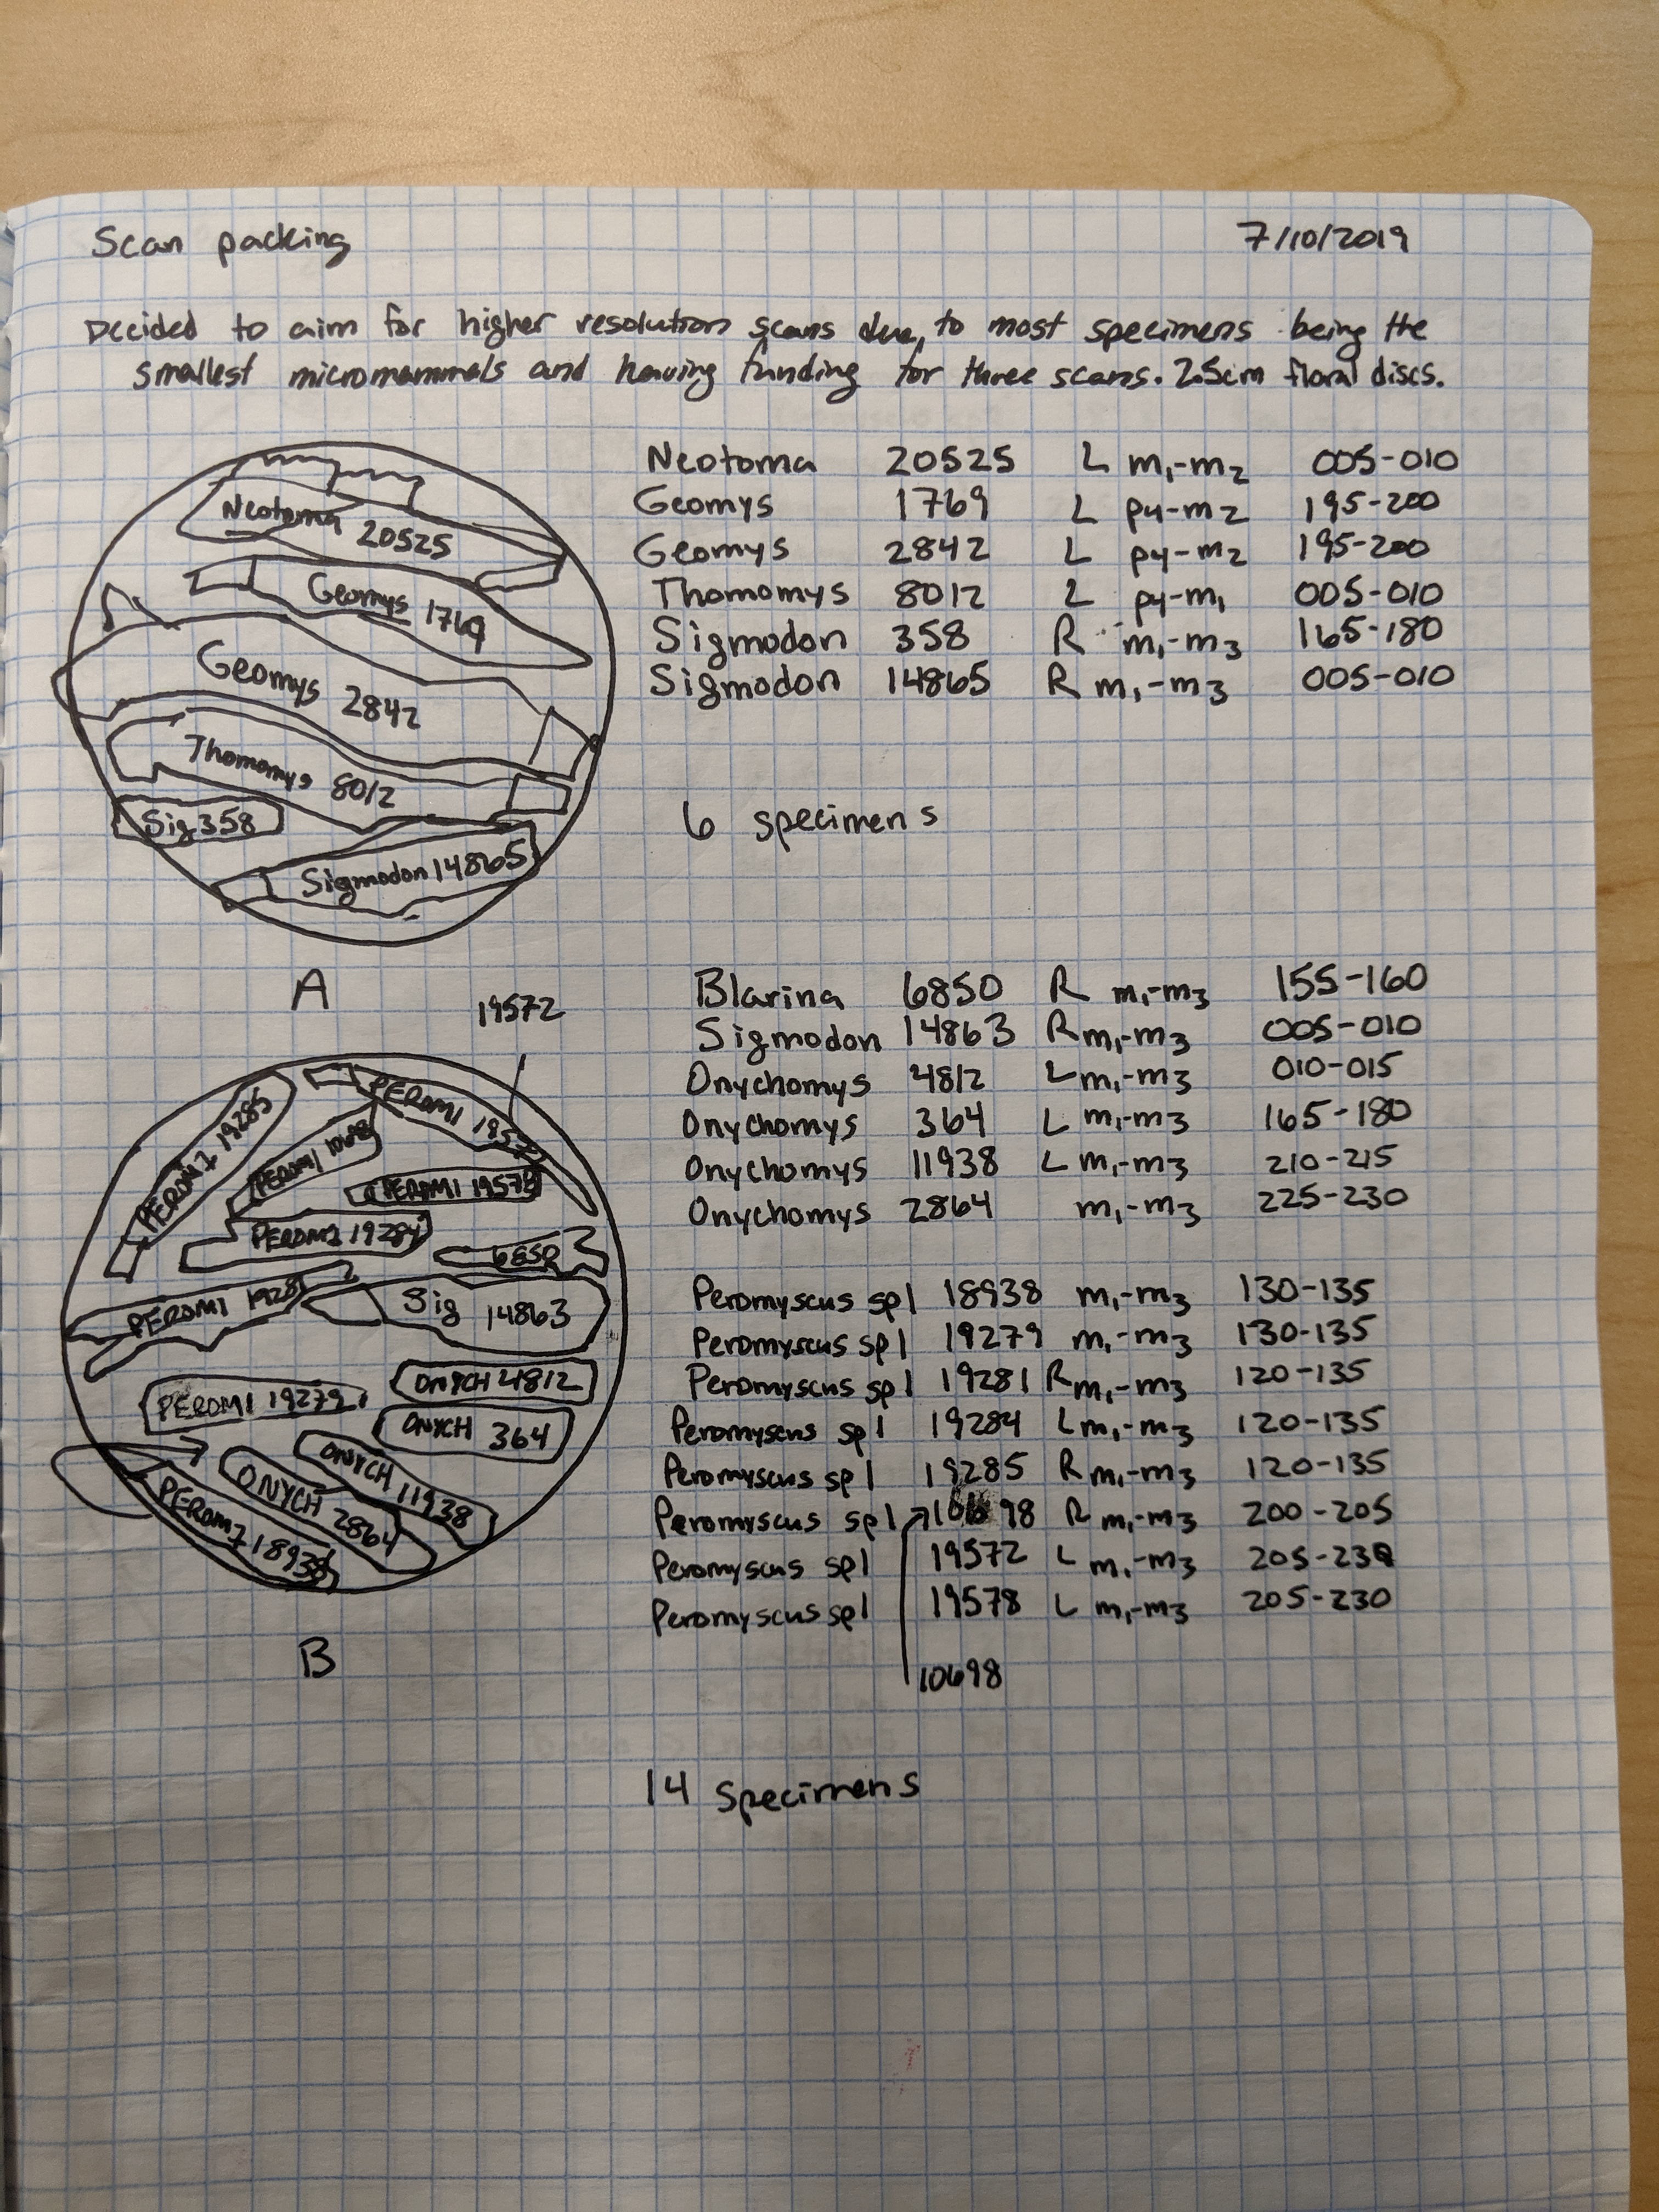 Scan packing 7/10/2019
Decided to aim for higher resolution scans due, to most specimens being the
smallest micromammals and having funding for three scans. 2.5cm floral discs.
Neotoma 20525
Geomys 1769
Geomys 2842
Thomomys 8012
Sig 358
Sigmodon 14865
A
Neotoma 20525 L m1-m2 005-010
Geomys 1769 L p4-m2 195-200
Geomys 2842 L p4-m2 195-200
Thomomys 8012 L p4-m1 005-010
Sigmodon 358 R m1-m3 165-180
Sigmodon 14865 R m1-m3 005-010
6 specimens
19572
PEROMI 19285
PEROMI
PEROMI
PEROMI 19578
PEROMI 19284
6850
PEROMI 19281
Sig 14863
PEROMI 19279
ONYCH 4812
ONYCH 364
ONYCH 11938
ONYCH 2864
PEROMI 18938
B
Blarina 6850 R m1-m3 155-160
Sigmodon 14863 R m1-m3 005-010
Onychomys 4812 L m1-m3 010-015
Onychomys 364 L m1-m3 165-180
Onychomys 11938 L m1-m3 210-215
Onychomys 2864 m1-m3 225-230
Peromyscus sp1 18938 m1-m3 130-135
Peromyscus sp1 19279 m1-m3 130-135
Peromyscus sp1 19281 R m1-m3 120-135
Peromyscus sp1 19284 L m1-m3 120-135
Peromyscus sp1 19285 R m1-m3 120-135
Peromyscus sp1 10698 R m1-m3 200-205
Peromyscus sp1 19572 L m1-m3 205-230
Peromyscus sp1 19578 L m1-m3 205-230
10698
14 specimens